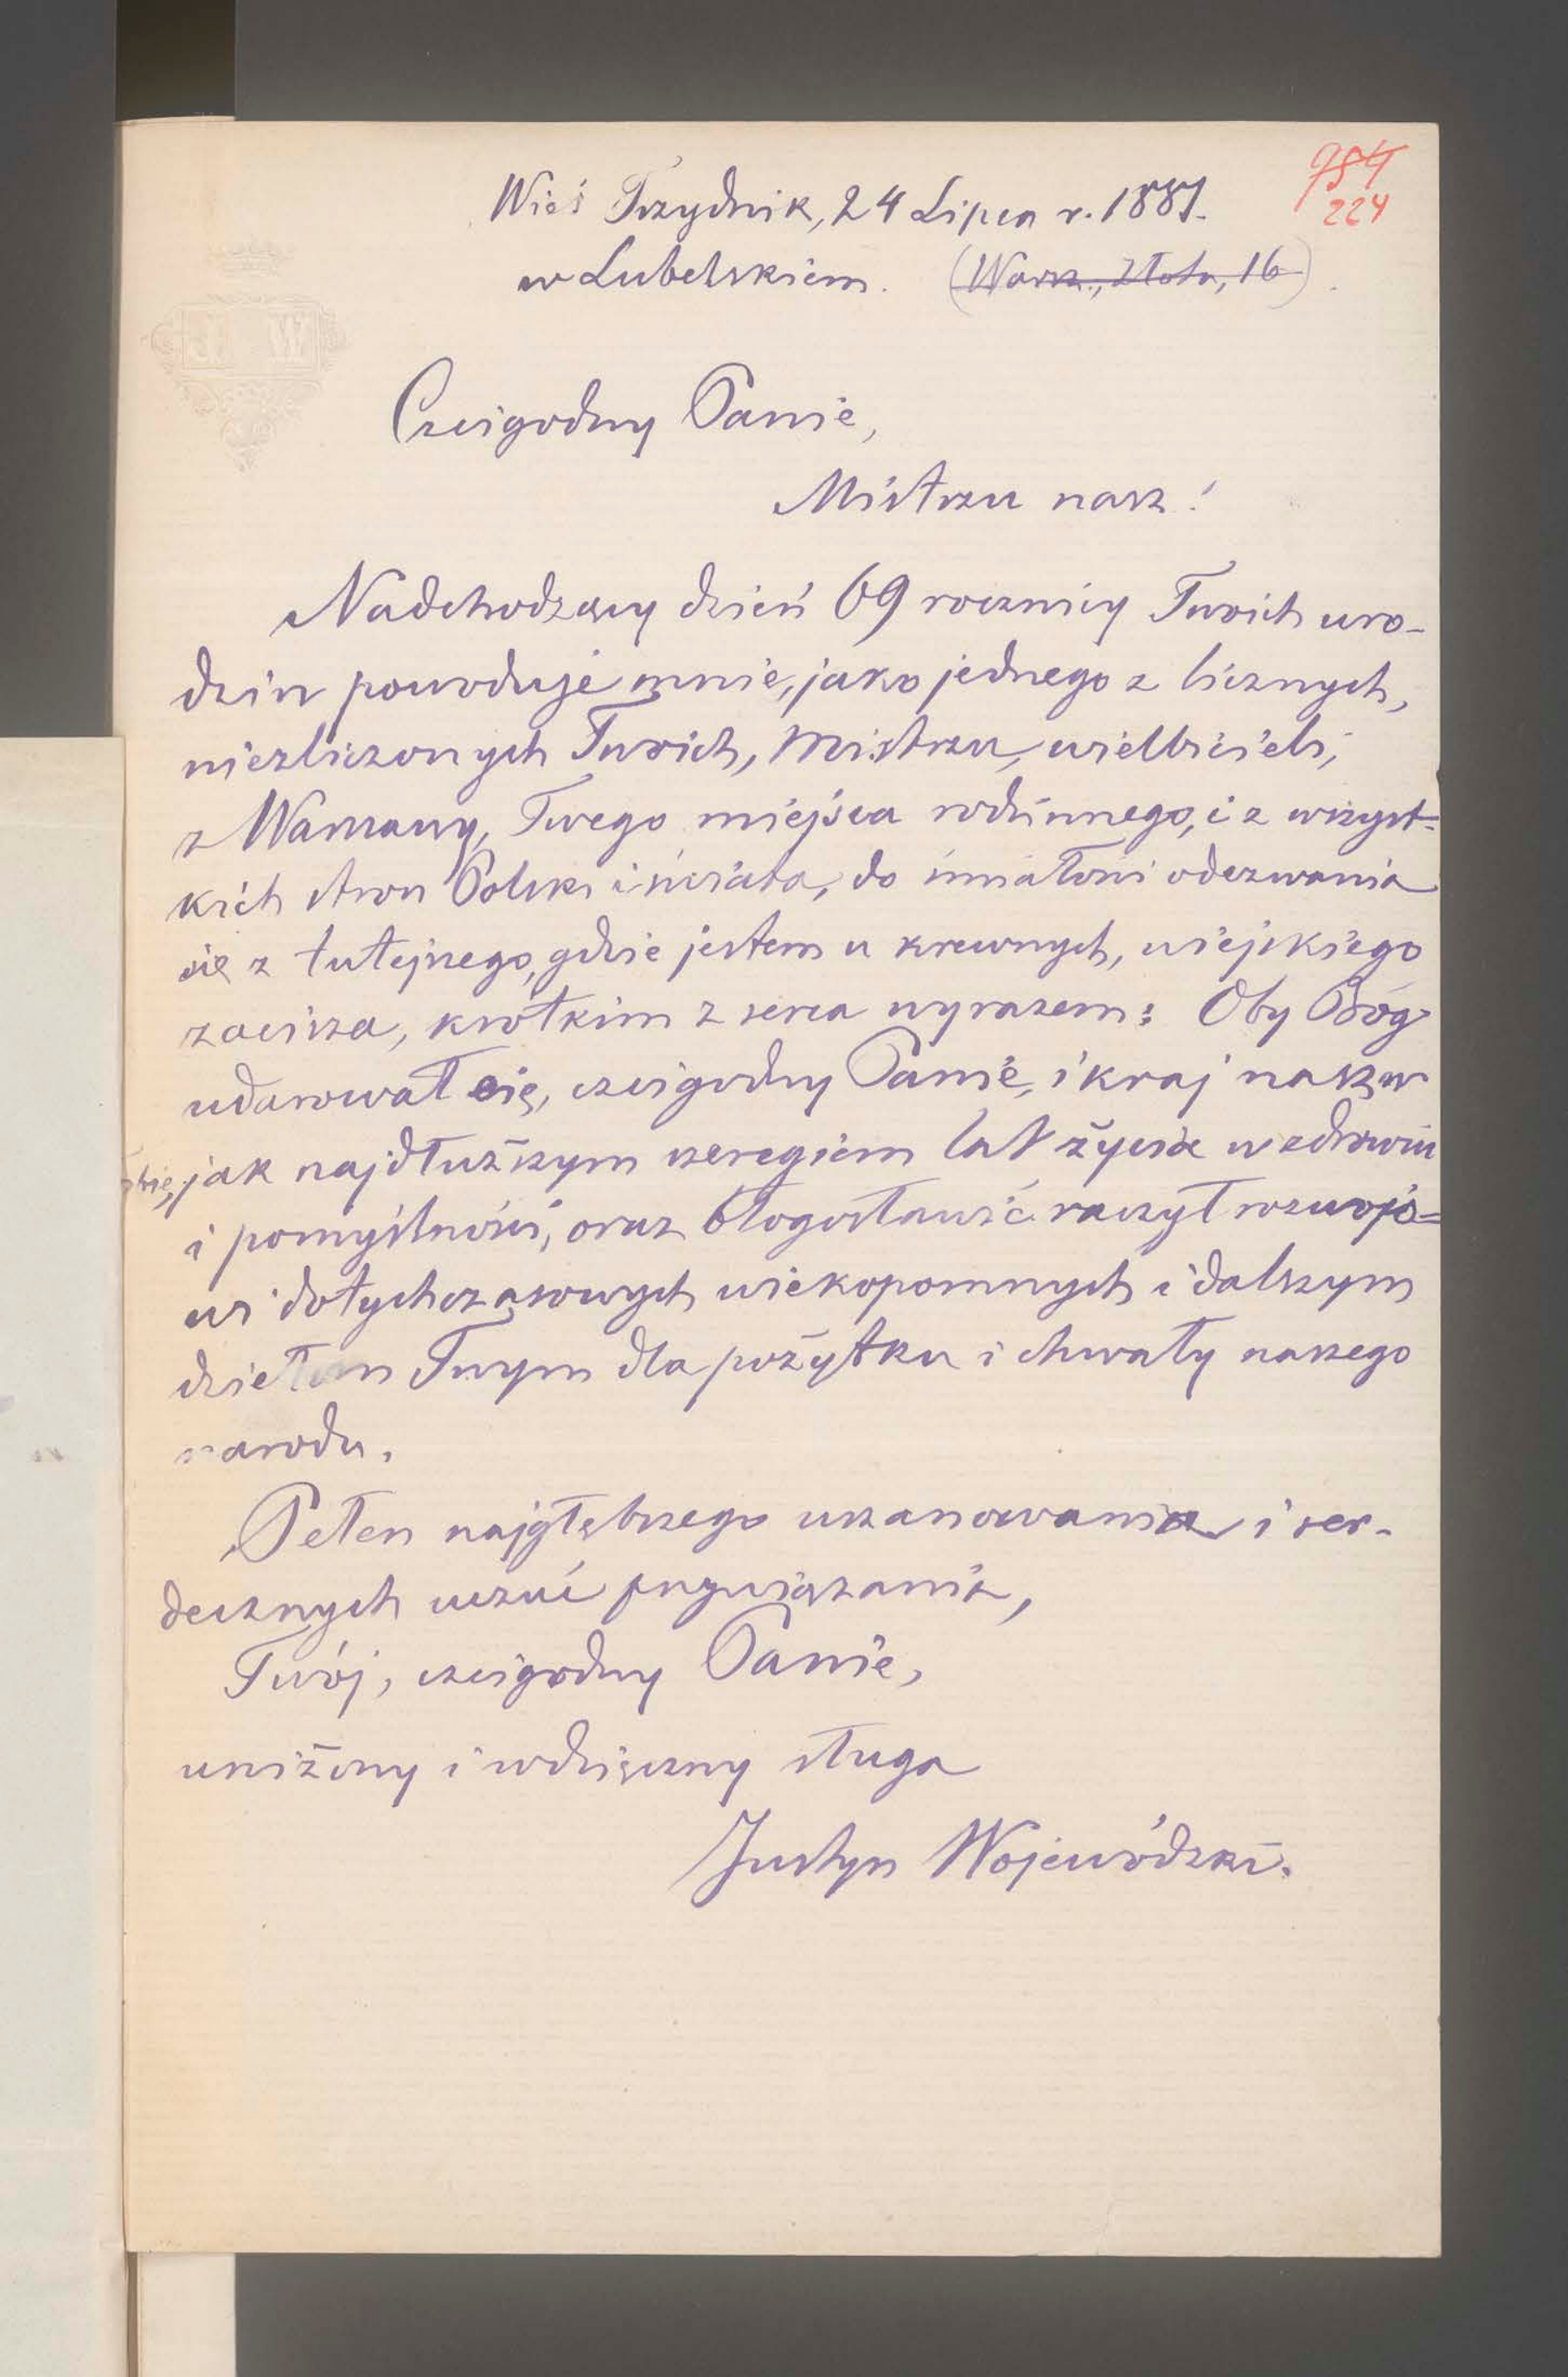 954
224
Wieś Trzydnik, 24 Lipca r. 1881.
w Lubelskiem. (Warsz., Złota, 16)
J W
Czcigodny Panie,
Mistrzu nasz!
Nadchodzący dzień 69 rocznicy Twoich uro-
dzin powoduje mnie, jako jednego z licznych,
niezliczonych Twoich, Mistrzu, wielbicieli,
z Warszawy, Twego miejsca rodzinnego, i z wszyst-
kich stron Polski i świata, do śmiałości odezwania
się z tutejszego, gdzie jestem u krewnych, wiejskiego
zacisza, krótkim z serca wyrazem: Oby Bóg
udarował Cię, czcigodny Panie, i kraj nasz w
Tobie, jak najdłuższym szeregiem lat życia w zdrowiu
i pomyślności, oraz błogosławić raczył rozwojo=
wi dotychczasowych wiekopomnych i dalszym
dziełom Twym dla pożytku i chwały naszego
narodu.
Pełen najgłębszego uszanowania i ser-
decznych uczuć przywiązania,
Twój, czcigodny Panie,
uniżony i wdzięczny sługa
Justyn Wojewódzki.